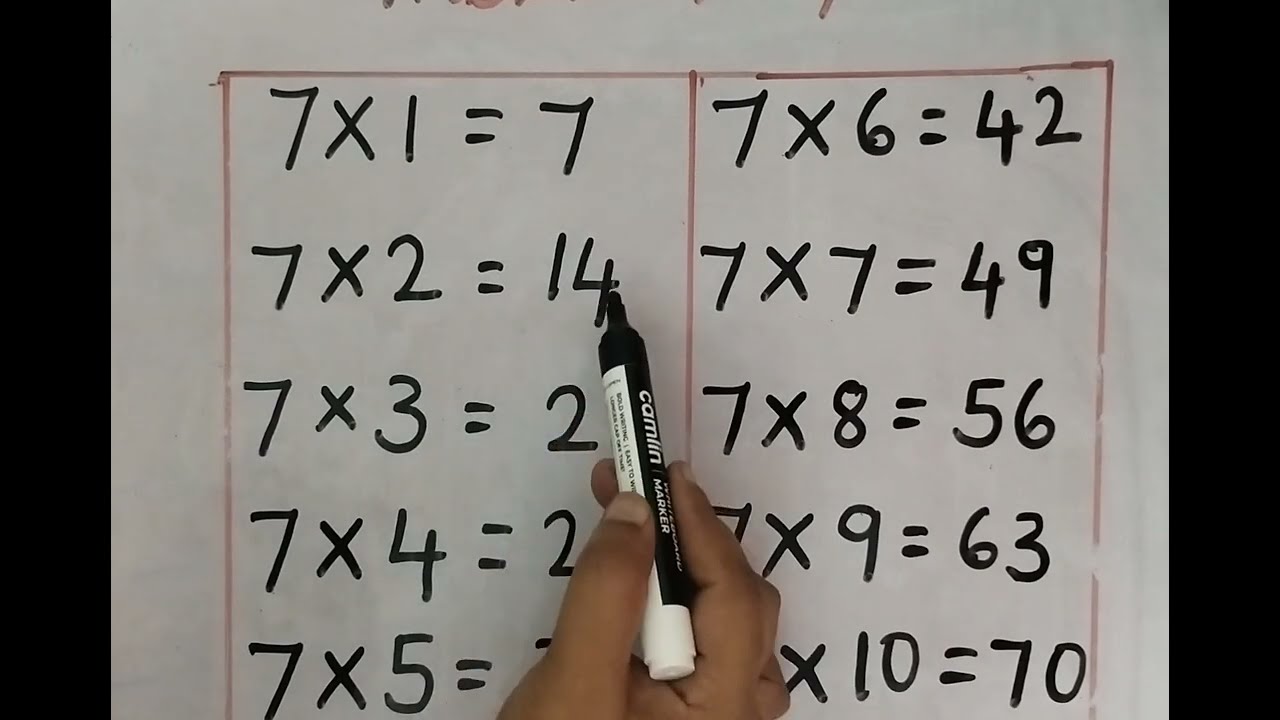 7×1 = 7
7×2 = 14
7×3 = 2
7×4 = 2
7×5 =
7×6=42
7×7=49
7×8=56
7×9=63
×10=70
camlin
MARKER
BOLD WRITING | EASY TO